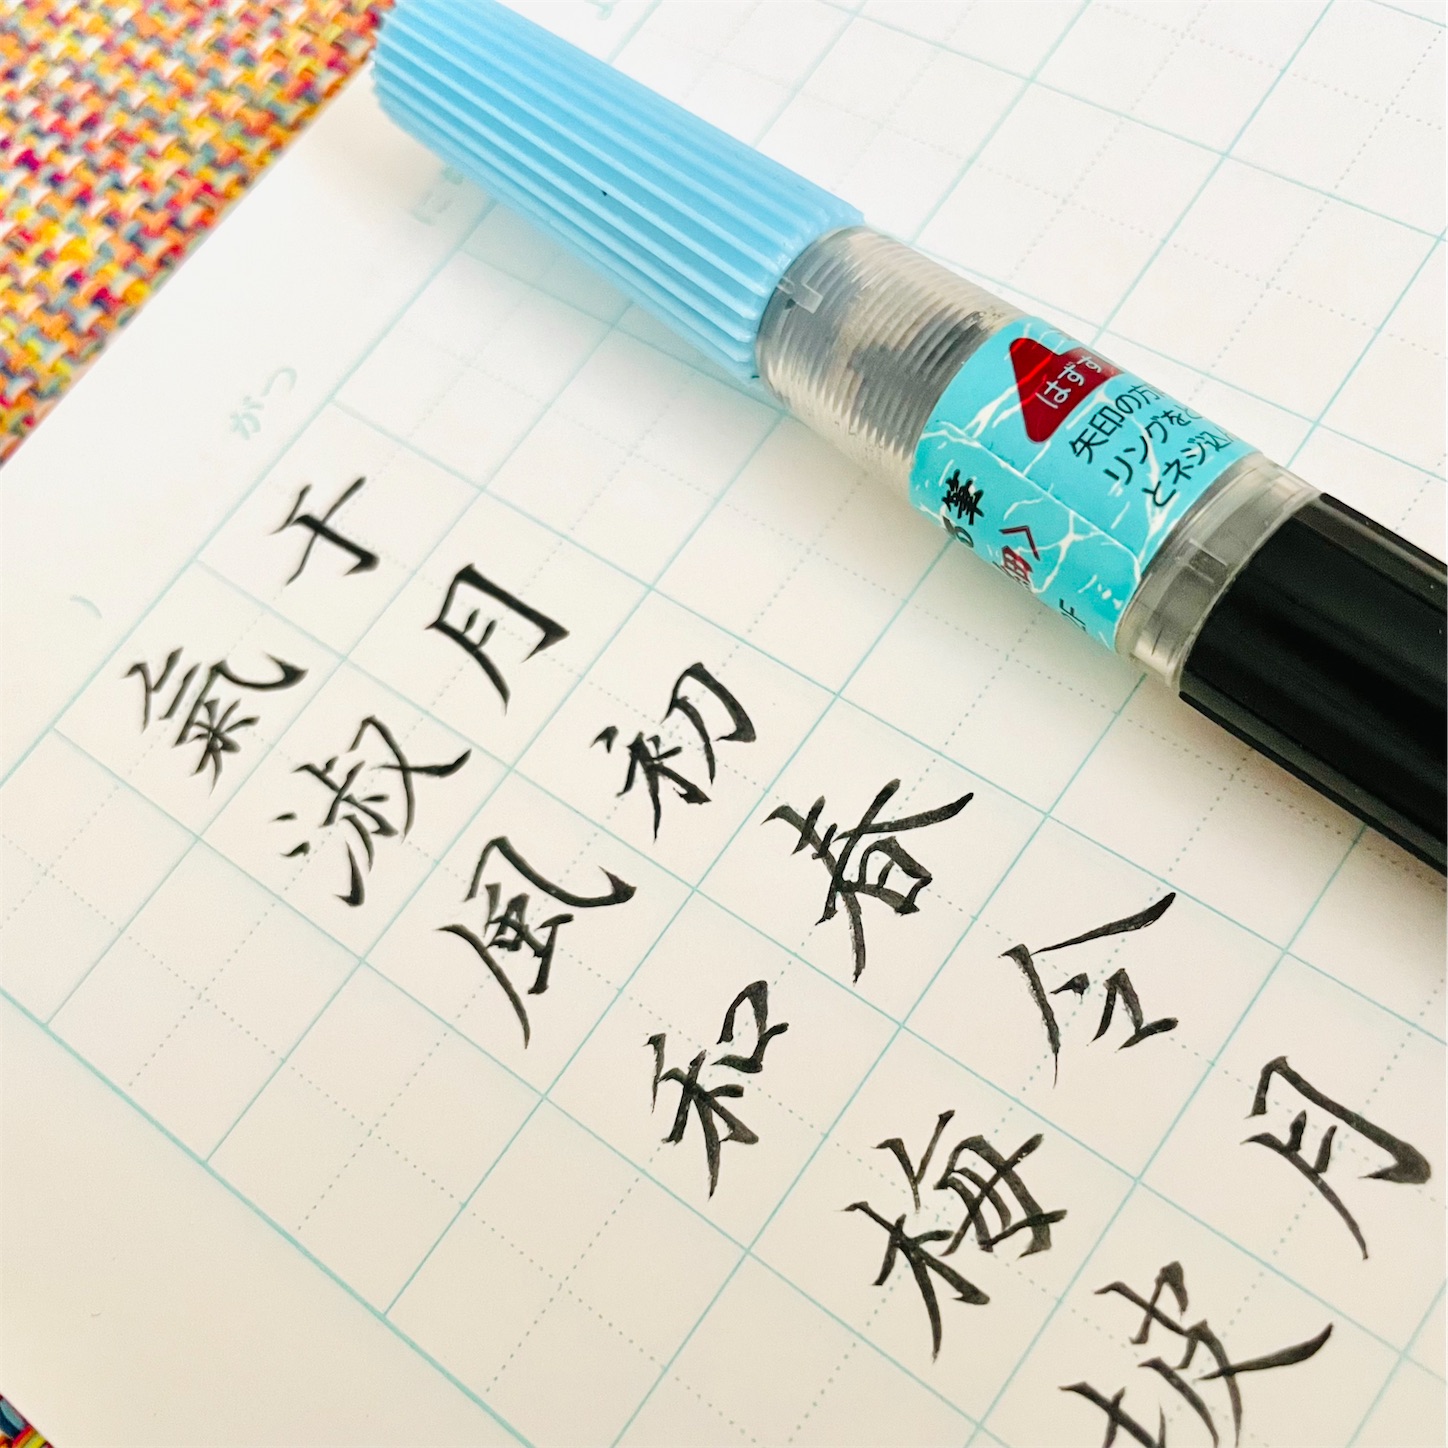 于月初春令月
氣淑風和梅披
はずす
矢印の方
リングを
とネジ込
筆
がつ